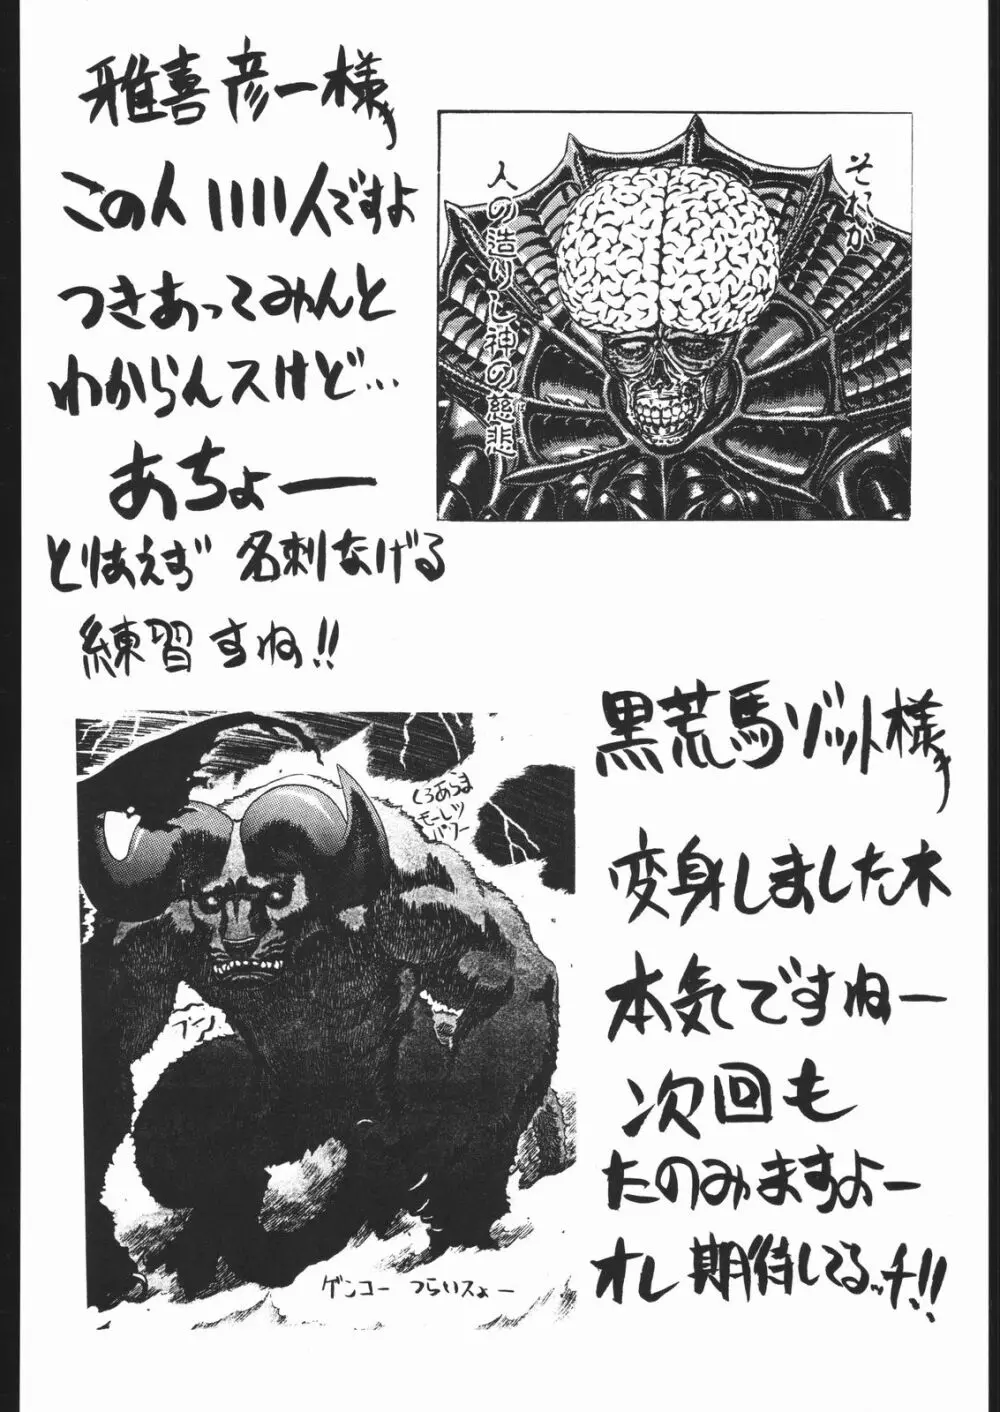 雅喜彦一様
この人いい人ですよ
つきあってみんと
わからんスけど…
あちょー
とりあえず 名刺なげる
練習すね!!
それが
人の造りし神の慈悲
黒荒馬ゾット様
変身しました木
本気ですねー
次回も
たのみますよー
オレ期待してるッチ!!
くろあらま
モーレツ
パワー
ブンッ
ゲンコー つらいスょー